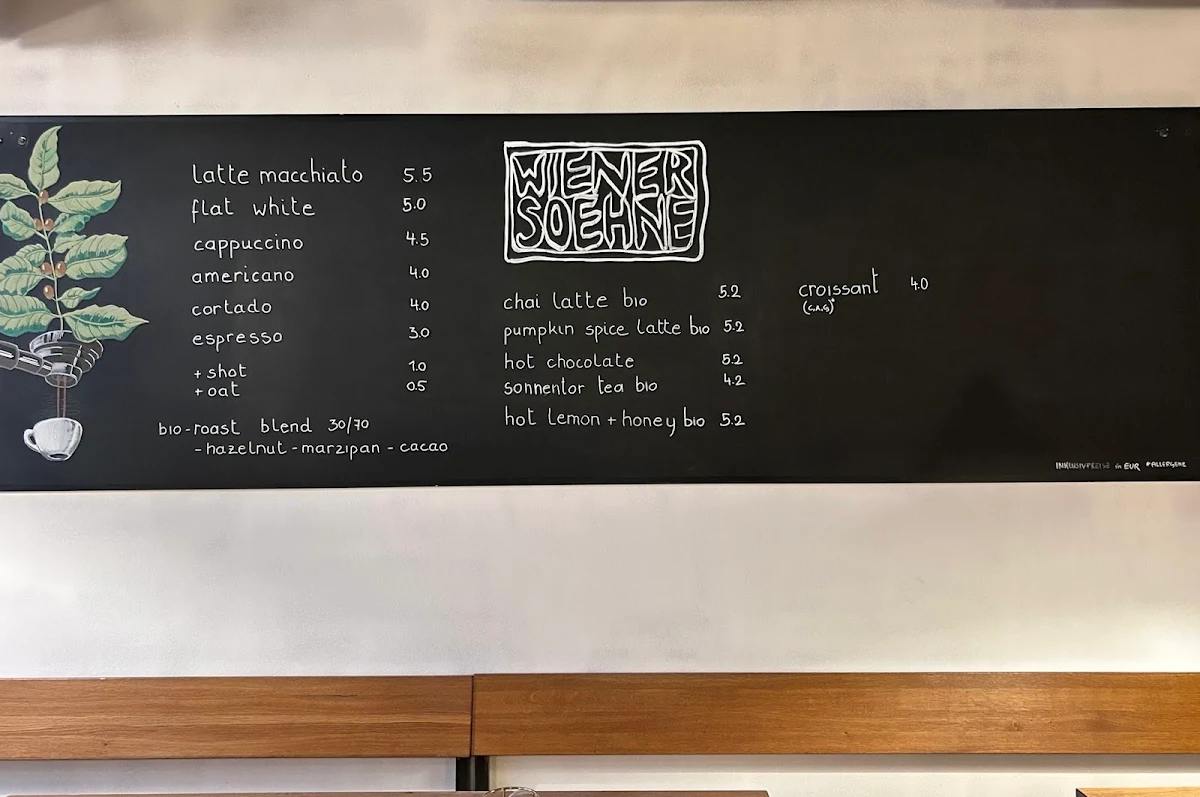 latte macchiato 5.5
flat white 5.0
cappuccino 4.5
americano 4.0
cortado 4.0
espresso 3.0
+ shot 1.0
+ oat 0.5
bio-roast blend 30/70
- hazelnut - marzipan - cacao
WIENER
SOEHNE
chai latte bio 5.2
pumpkin spice latte bio 5.2
hot chocolate 5.2
sonnentor tea bio 4.2
hot lemon + honey bio 5.2
croissant 4.0
(C,A,G)*
INKLUSIVPREISE in EUR *ALLERGENE